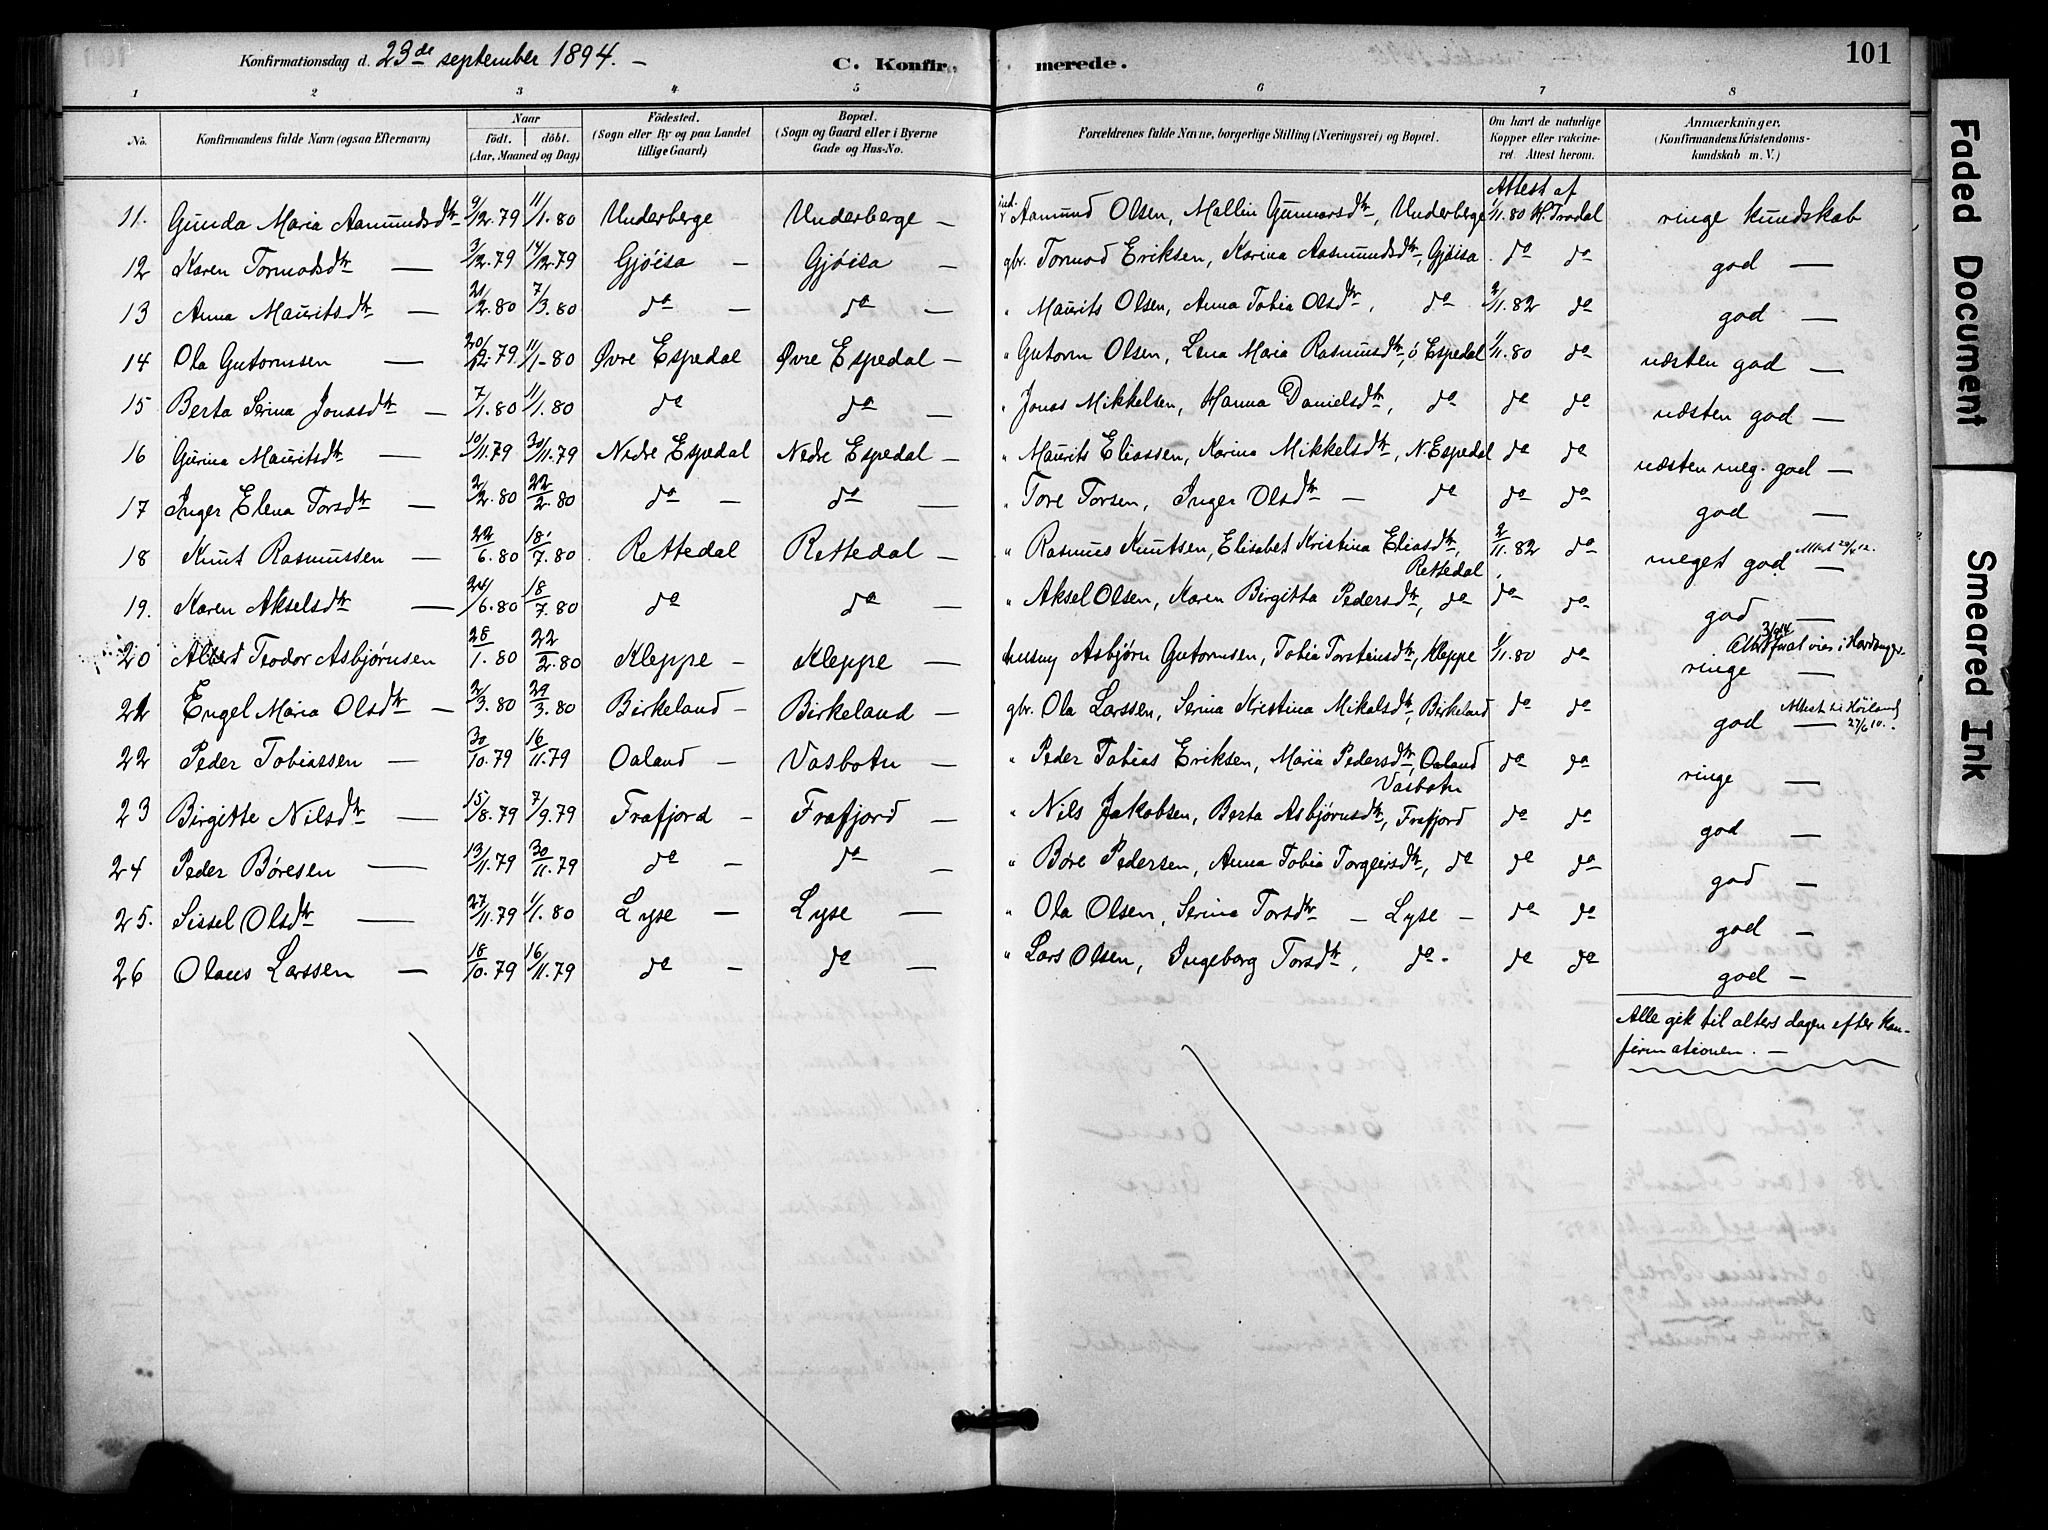 Konfirmationsdag d. 23de september 1894. —
C. Konfir- merede. 101
1 2 3 4 5 6 7 8
No. Konfirmandens fulde Navn (ogsaa Efternavn) Naar født. døbt. (Aar, Maaned og Dag) Fødested. (Sogn eller By og paa Landet tillige Gaard) Bopæl. (Sogn og Gaard eller i Byerne Gade og Hus-No. Forældrenes fulde Navne, borgerlige Stilling (Næringsvei) og Bopæl. Om havt de naturlige Kopper eller vakcineret. Attest herom. Anmærkninger. (Konfirmandens Kristendomskundskab m. V.)
11. Gunda Maria Aamundsdtr 9/12.79 11/1.80 Underberge Underberge — Aamund Olsen, Mallin Gunnarsdtr, Underberge Attest af 1/11.80 H. Trodal ringe kundskab
12 Karen Tormodsdtr — 3/12.79 14/12.79 Gjøisa — Gjøisa — gbr. Tormod Eriksen, Karina Aasmundsdtr, Gjøisa do do god —
13 Anna Mauritsdtr — 21/2.80 7/3.80 do — do — " Maurits Olsen, Anna Tobia Olsdtr, do 2/11.82 do god —
14 Ola Gutormsen — 20/12.79 11/1-80 Øvre Espedal Øvre Espedal — " Gutorm Olsen, Lena Maria Rasmusdtr, ø Espedal 1/11.80 do næsten god —
15 Berta Serina Jonasdtr — 7/1.80 11/1.80 do do — " Jonas Mikkelsen, Hanna Danielsdtr, do do do næsten god —
16 Gurina Mauritsdtr — 10/11.79 30/11.79 Nedre Espedal Nedre Espedal — " Maurits Eliassen, Karina Mikkelsdtr, N. Espedal do do næsten meg. god —
17 Inger Elena Torsdtr — 2/2.80 22/2.80 do — do — " Tore Torsen, Inger Olsdtr — do do do god —
18 Knut Rasmussen — 22/6.80 18/7.80 Rettedal Rettedal — " Rasmus Knutsen, Elisebet Kristina Eliasdtr, Rettedal 2/11.82 do meget god —
19. Karen Akselsdtr — 24/6.80 18/7.80 do do — " Aksel Olsen, Karen Birgitta Pedersdtr, do do do god —
20 Albert Teodor Asbjørnsen 28/1.80 22/2.80 Kleppe — Kleppe — husmy Asbjørn Gutormsen, Tobia Torsteinsdtr, Kleppe 1/11.80 do ringe —
21 Engel Maria Olsdtr — 2/3.80 29/3.80 Birkeland — Birkeland — gbr. Ola Larssen, Serina Kristina Mikalsdtr, Birkeland do do god — Attest til Høiland 27/6 10.
22 Peder Tobiassen — 30/10.79 16/11.79 Oaland — Vasbotn — " Peder Tobias Eriksen, Maria Pedersdtr, Oaland Vasbotn do do ringe —
23 Birgitte Nilsdtr — 15/8.79 7/9.79 Frafjord — Frafjord — " Nils Jakobsen, Berta Asbjørnsdtr, Frafjord do do god —
24 Peder Børesen — 13/11.79 30/11.79 do — do — " Børe Pedersen, Anna Tobia Torgeirsdtr, do do do god —
25. Sissel Olsdtr — 27/11.79 1/1.80 Lyse — Lyse — " Ola Olsen, Serina Torsdtr — Lyse — do do god —
26 Olaus Larssen — 18/10.79 16/11.79 do — do — " Lars Olsen, Ingeborg Torsdtr, do - do do god —
Alle gik til alters dagen efter kon-
firmationen. —
Faded Document
Smeared Ink